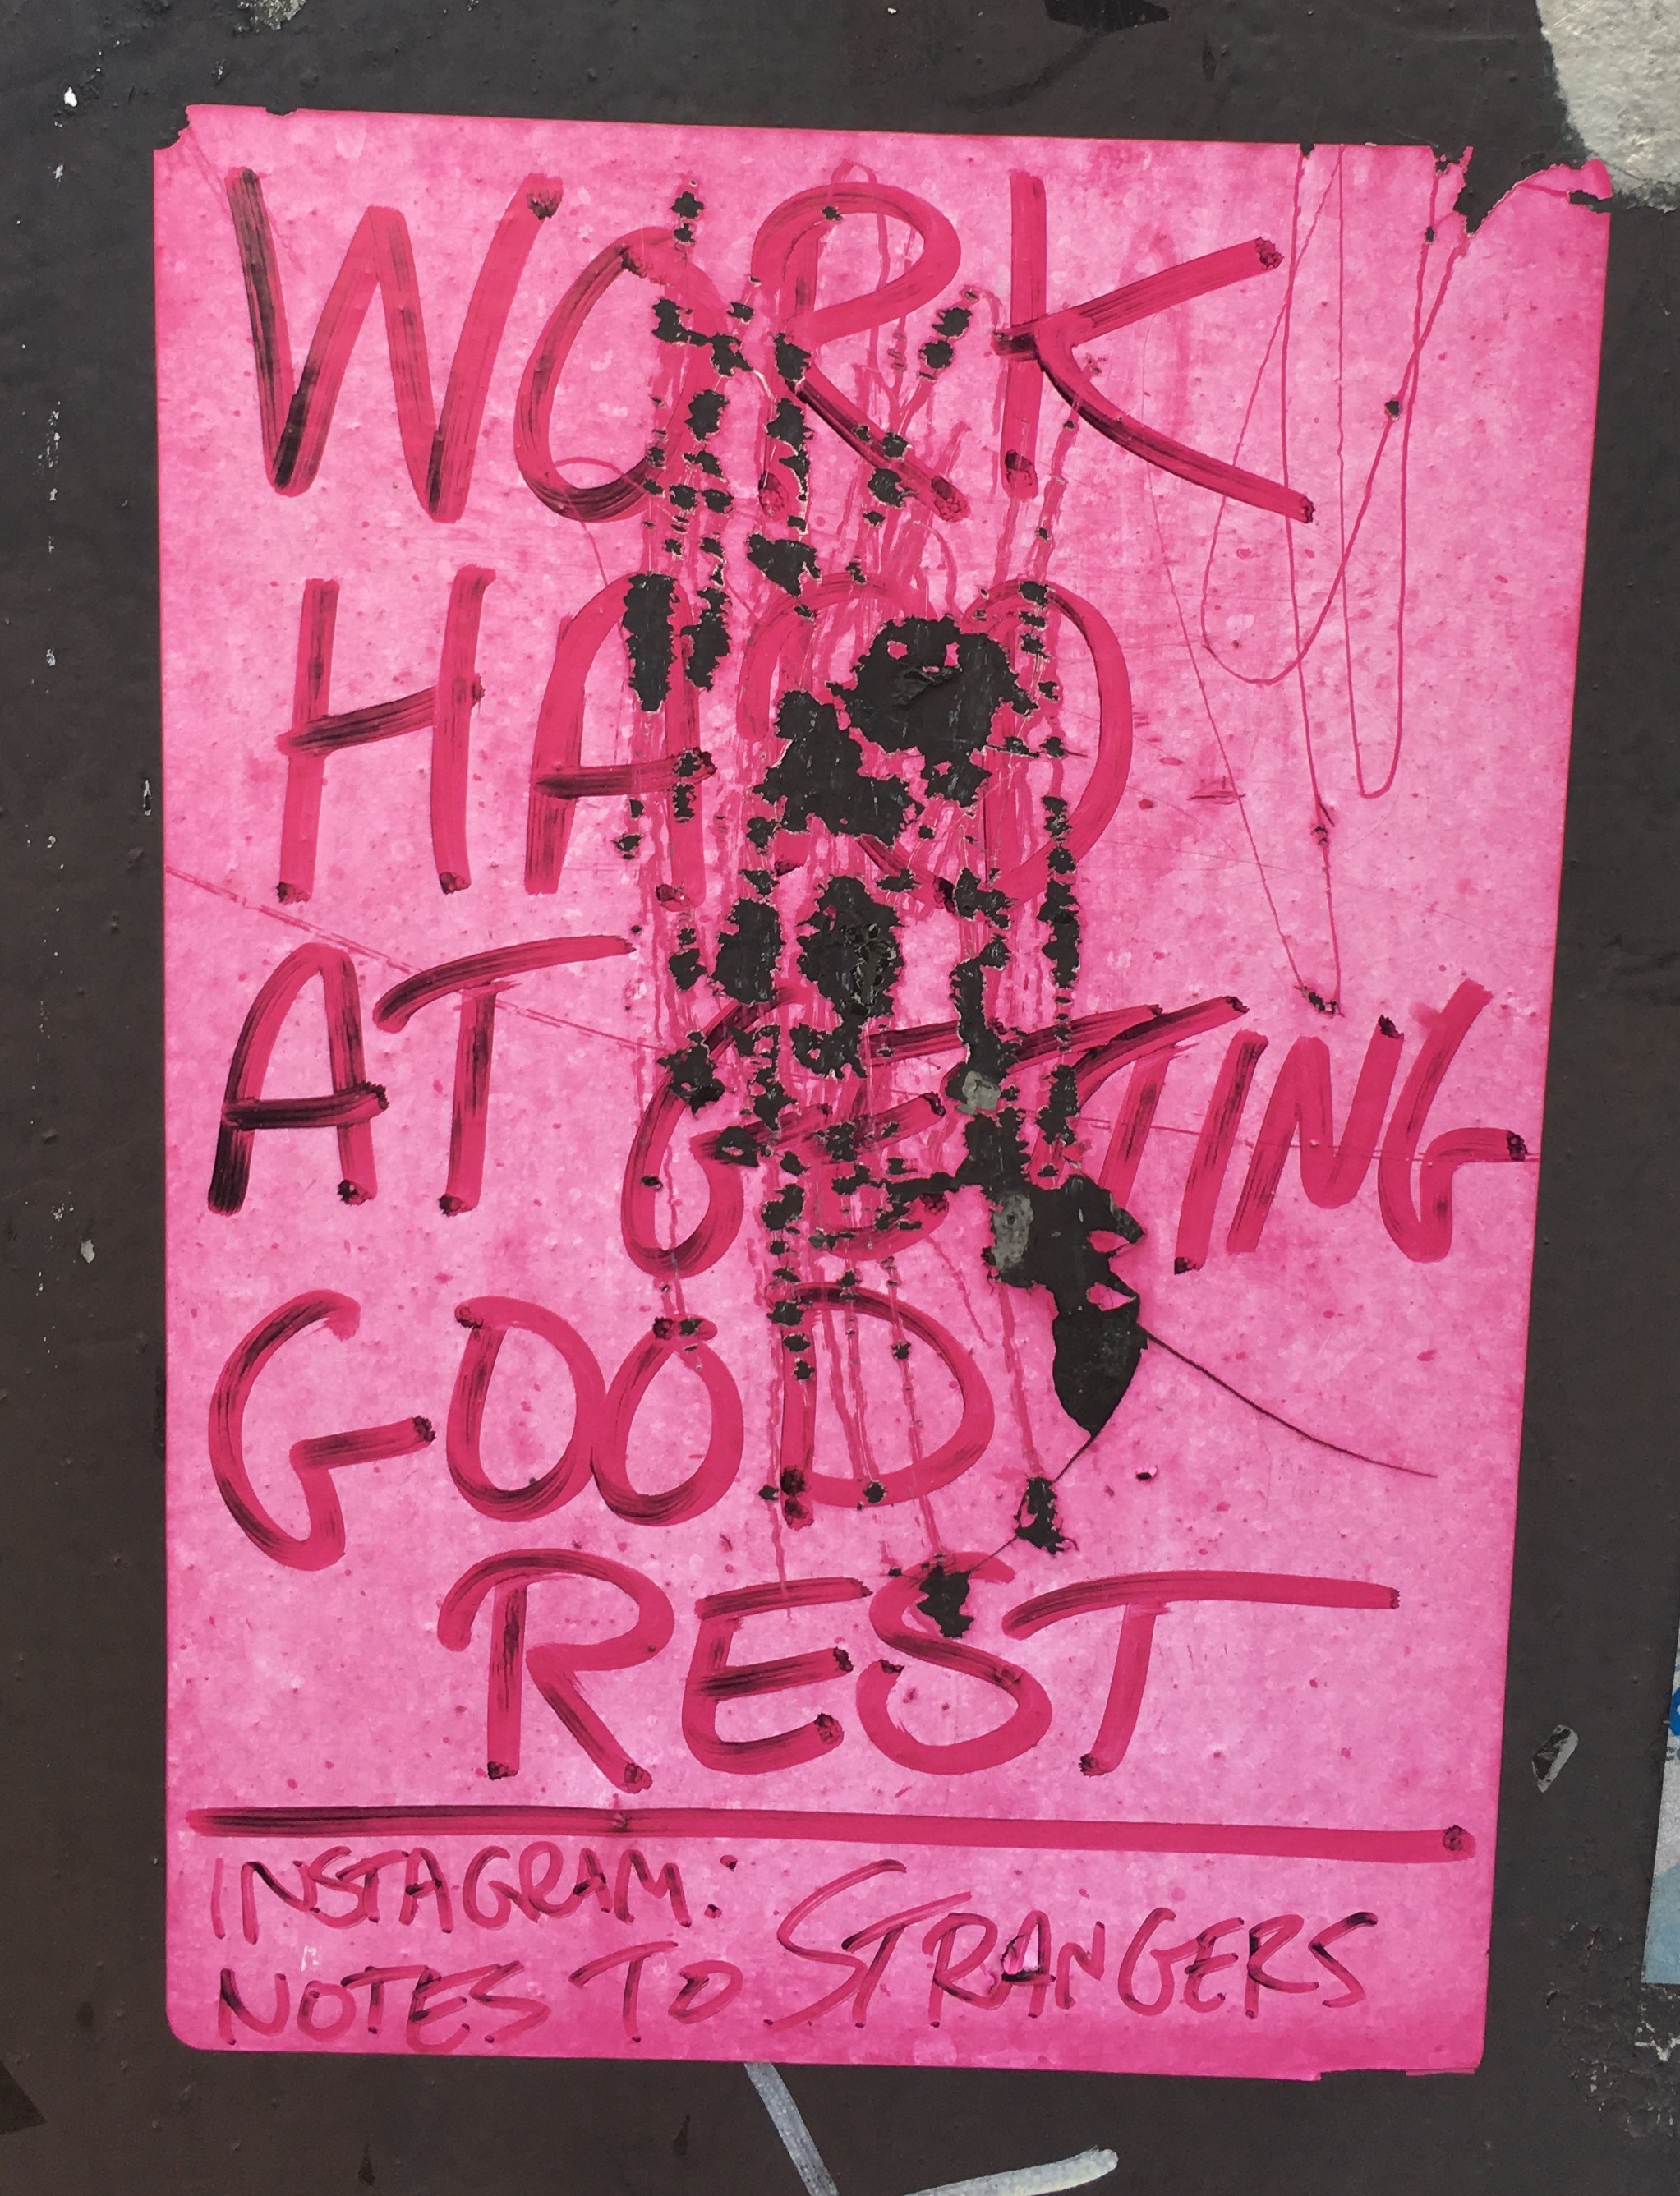 WORK
HARD
AT GETTING
GOOD
REST
INSTAGRAM:
NOTES TO STRANGERS